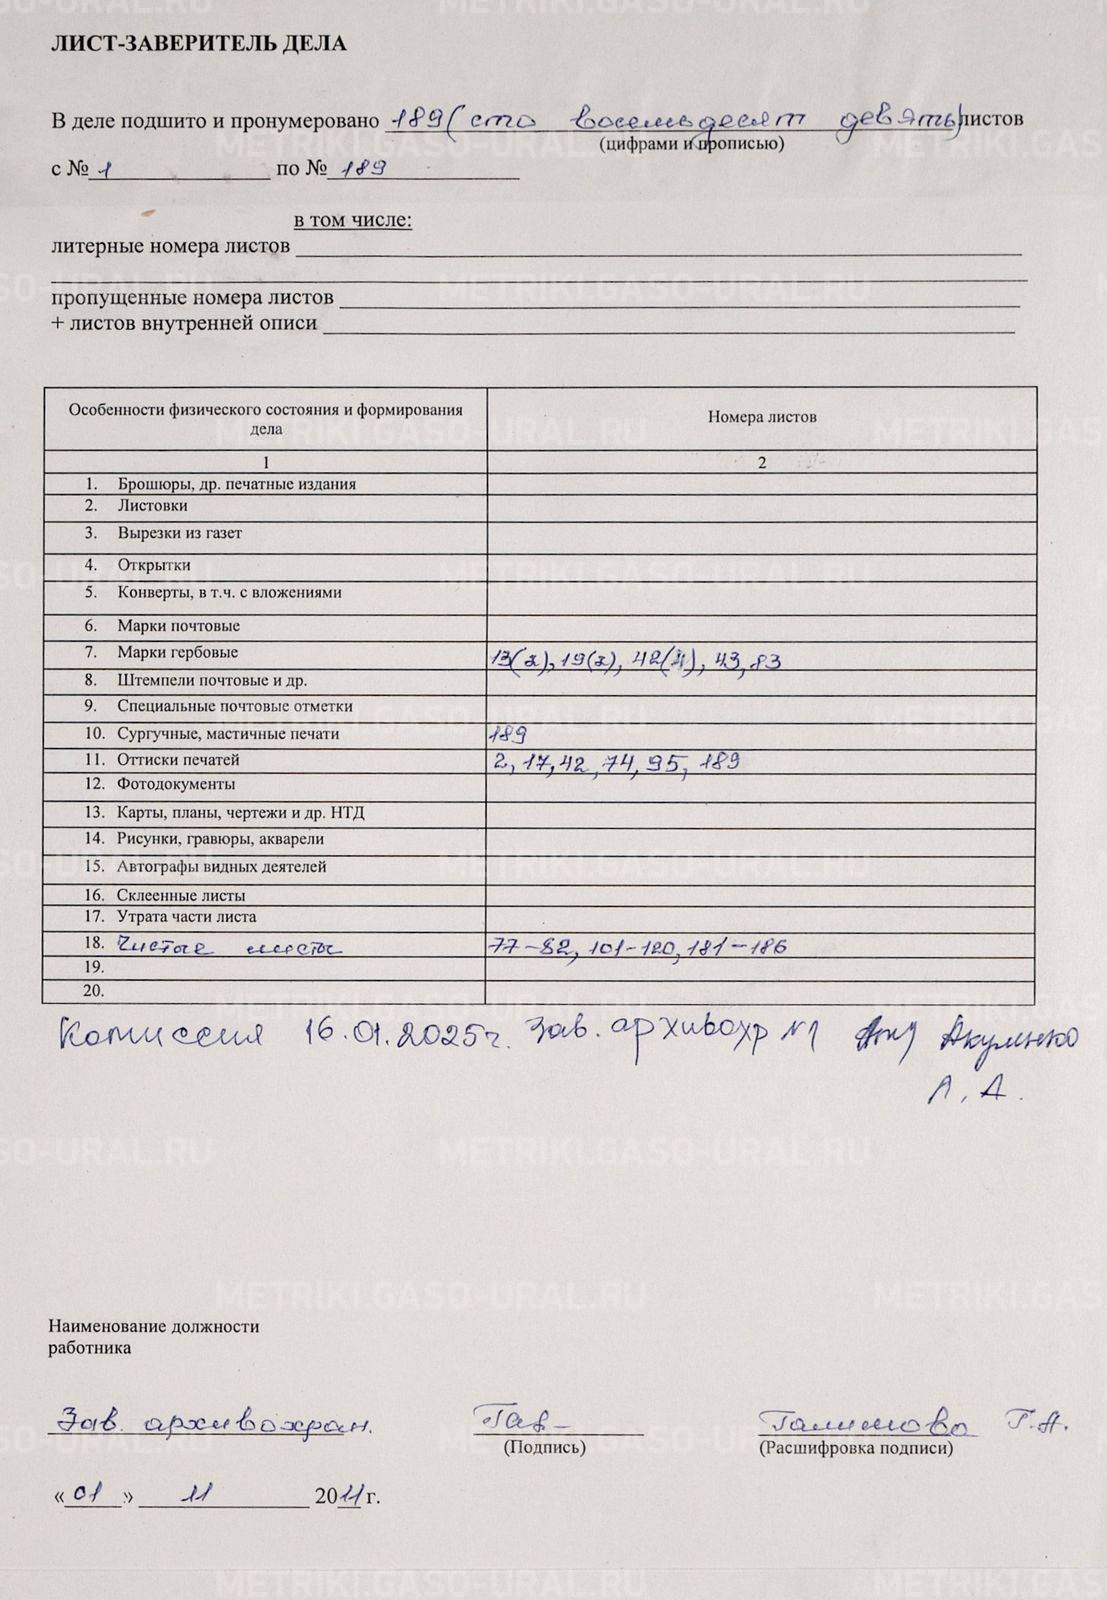 ЛИСТ-ЗАВЕРИТЕЛЬ ДЕЛА
В деле подшито и пронумеровано 189 (сто восемьдесят девять) листов
(цифрами и прописью)
с № 1 по № 189
в том числе:
литерные номера листов
пропущенные номера листов
+ листов внутренней описи
Особенности физического состояния и формирования дела Номера листов
1 2
1. Брошюры, др. печатные издания
2. Листовки
3. Вырезки из газет
4. Открытки
5. Конверты, в т.ч. с вложениями
6. Марки почтовые
7. Марки гербовые 13(2), 19(2), 42(4), 43, 83
8. Штемпели почтовые и др.
9. Специальные почтовые отметки
10. Сургучные, мастичные печати 189
11. Оттиски печатей 2, 17, 42, 74, 95, 189
12. Фотодокументы
13. Карты, планы, чертежи и др. НТД
14. Рисунки, гравюры, акварели
15. Автографы видных деятелей
16. Склеенные листы
17. Утрата части листа
18. Чистые листы 77-82, 101-120, 181-186
19.
20.
Комиссия 16.01.2025г. Зав. архивохр №1 Акуленко
А. А.
Наименование должности
работника
Зав. архивохран. Гал- Галимова Г.А.
(Подпись) (Расшифровка подписи)
«01» 11 2011 г.
METRIKI.GASO-URAL.RU